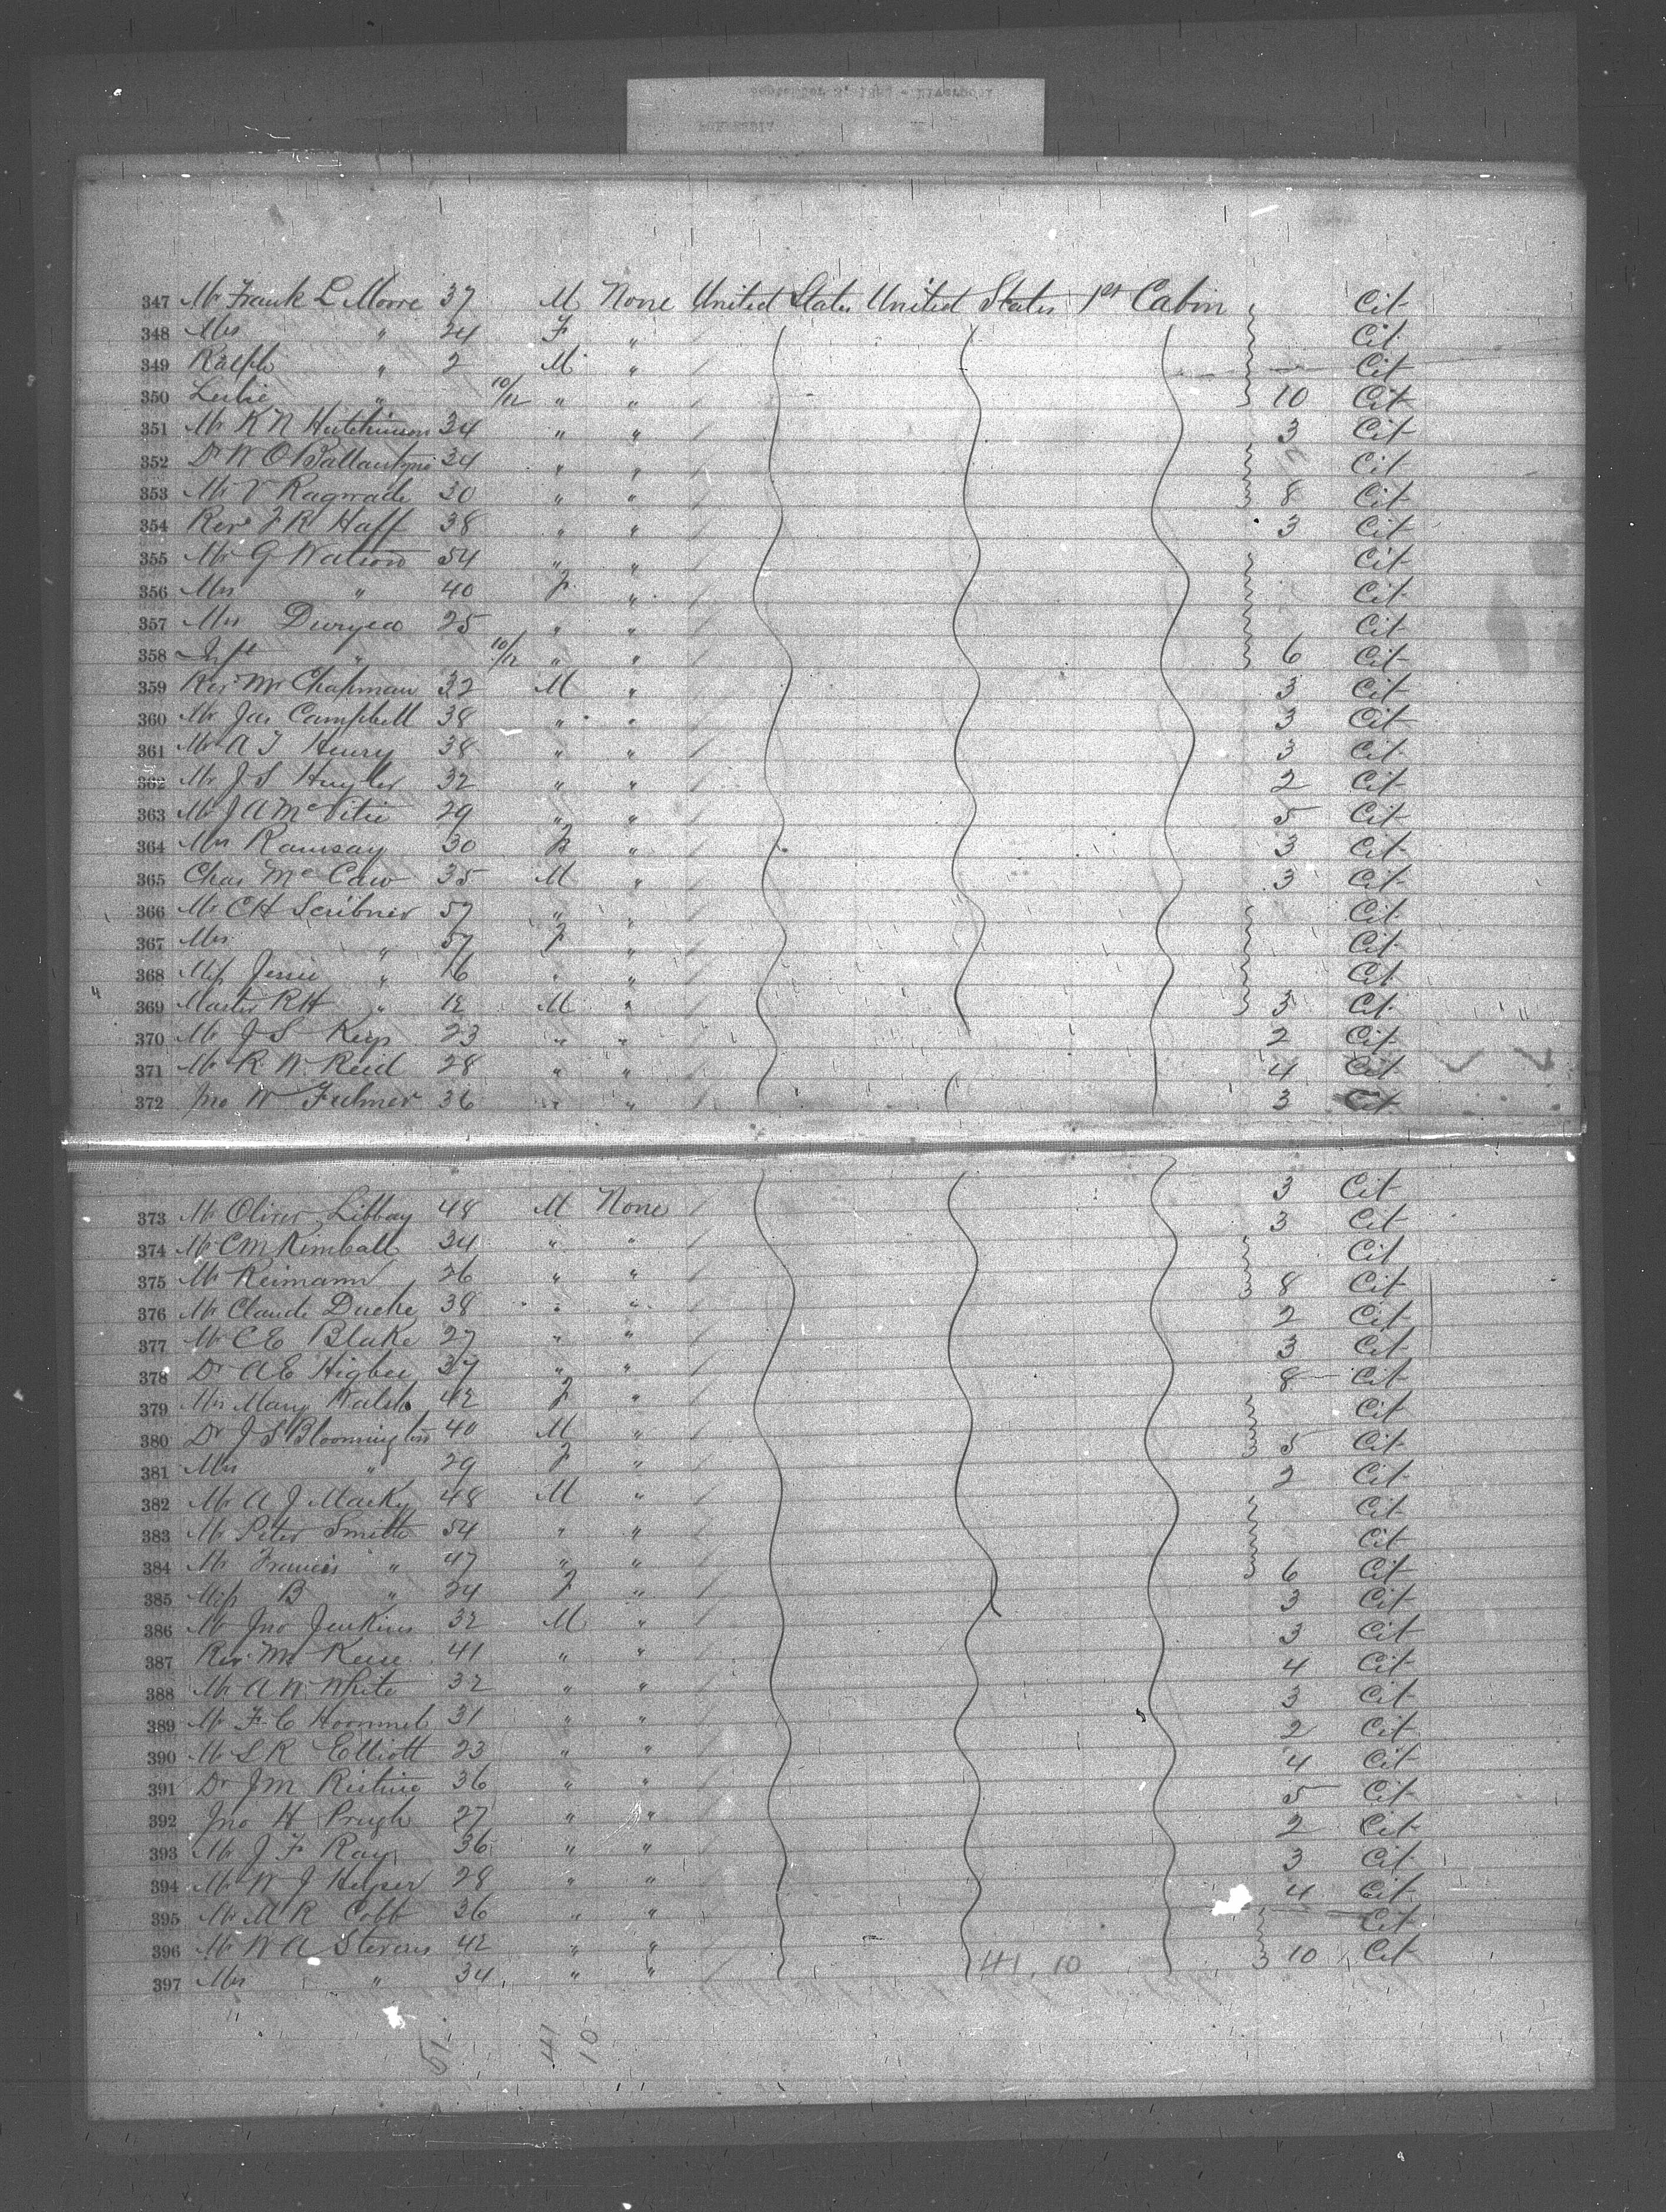 347 Mr Frank L Moore 37 M None United States United States 1st Cabin Cit
348 Mrs " 24 F " Cit
349 Ralph " 2 M " Cit
350 Leslie " 10/12 " " 10 Cit
351 Mr R N Hutchinson 34 " " 3 Cit
352 Dr W O Ballantyne 34 " " Cit
353 Mr V Ragwade 30 " " 8 Cit
354 Rev J R Haff 38 " " 3 Cit
355 Mr G Watson 54 " " Cit
356 Mrs " 40 F " Cit
357 Mrs Duryea 25 " " Cit
358 Inft " 10/12 " " 6 Cit
359 Rev Mr Chapman 32 M " 3 Cit
360 Mr Jas Campbell 38 " " 3 Cit
361 Mr A J Henry 38 " " 3 Cit
362 Mr J S Huyler 32 " " 2 Cit
363 Mr J A McVitie 29 " " 5 Cit
364 Mrs Ramsay 30 F " 3 Cit
365 Chas McCaw 35 M " 3 Cit
366 Mr C H Scribner 57 " " Cit
367 Mrs " 57 F " Cit
368 Miss Jessie " 16 " " Cit
369 Master R H " 12 M " 5 Cit
370 Mr J S Keys 23 " " 2 Cit
371 Mr R W Reid 28 " " 4 Cit
372 Jno W Fulmer 36 " " 3 Cit
3 Cit
373 Mr Oliver Libbay 48 M None 3 Cit
374 Mr C M Kimball 34 " " Cit
375 Mr Reimann 26 " " 8 Cit
376 Mr Claude Duche 38 " " 2 Cit
377 Mr C E Blake 27 " " 3 Cit
378 Dr A E Higbee 37 " " 8 Cit
379 Mrs Mary Walsh 42 F " Cit
380 Dr J S Bloomington 40 M " 5 Cit
381 Mrs " 29 F " 2 Cit
382 Mr A J Macky 48 M " Cit
383 Mr Peter Smith 54 " " Cit
384 Mr Francis " 47 " " 6 Cit
385 Miss B " 24 F " 3 Cit
386 Mr Jno Jenkins 32 M " 3 Cit
387 Rev Mr 41 " " 4 Cit
388 Mr A W White 32 " " 3 Cit
389 Mr F C Hommel 31 " " 2 Cit
390 Mr L R Elliott 23 " " 4 Cit
391 Dr J M Ristine 36 " " 5 Cit
392 Jno H Prugh 27 " " 2 Cit
393 Mr J F Ray 36 " " 3 Cit
394 Mr W J Helper 28 " " 4 Cit
395 Mr M R Cobb 36 " " Cit
396 Mr W A Stevens 42 " " 41 10 10 Cit
397 Mrs " 34 " "
51 41 10